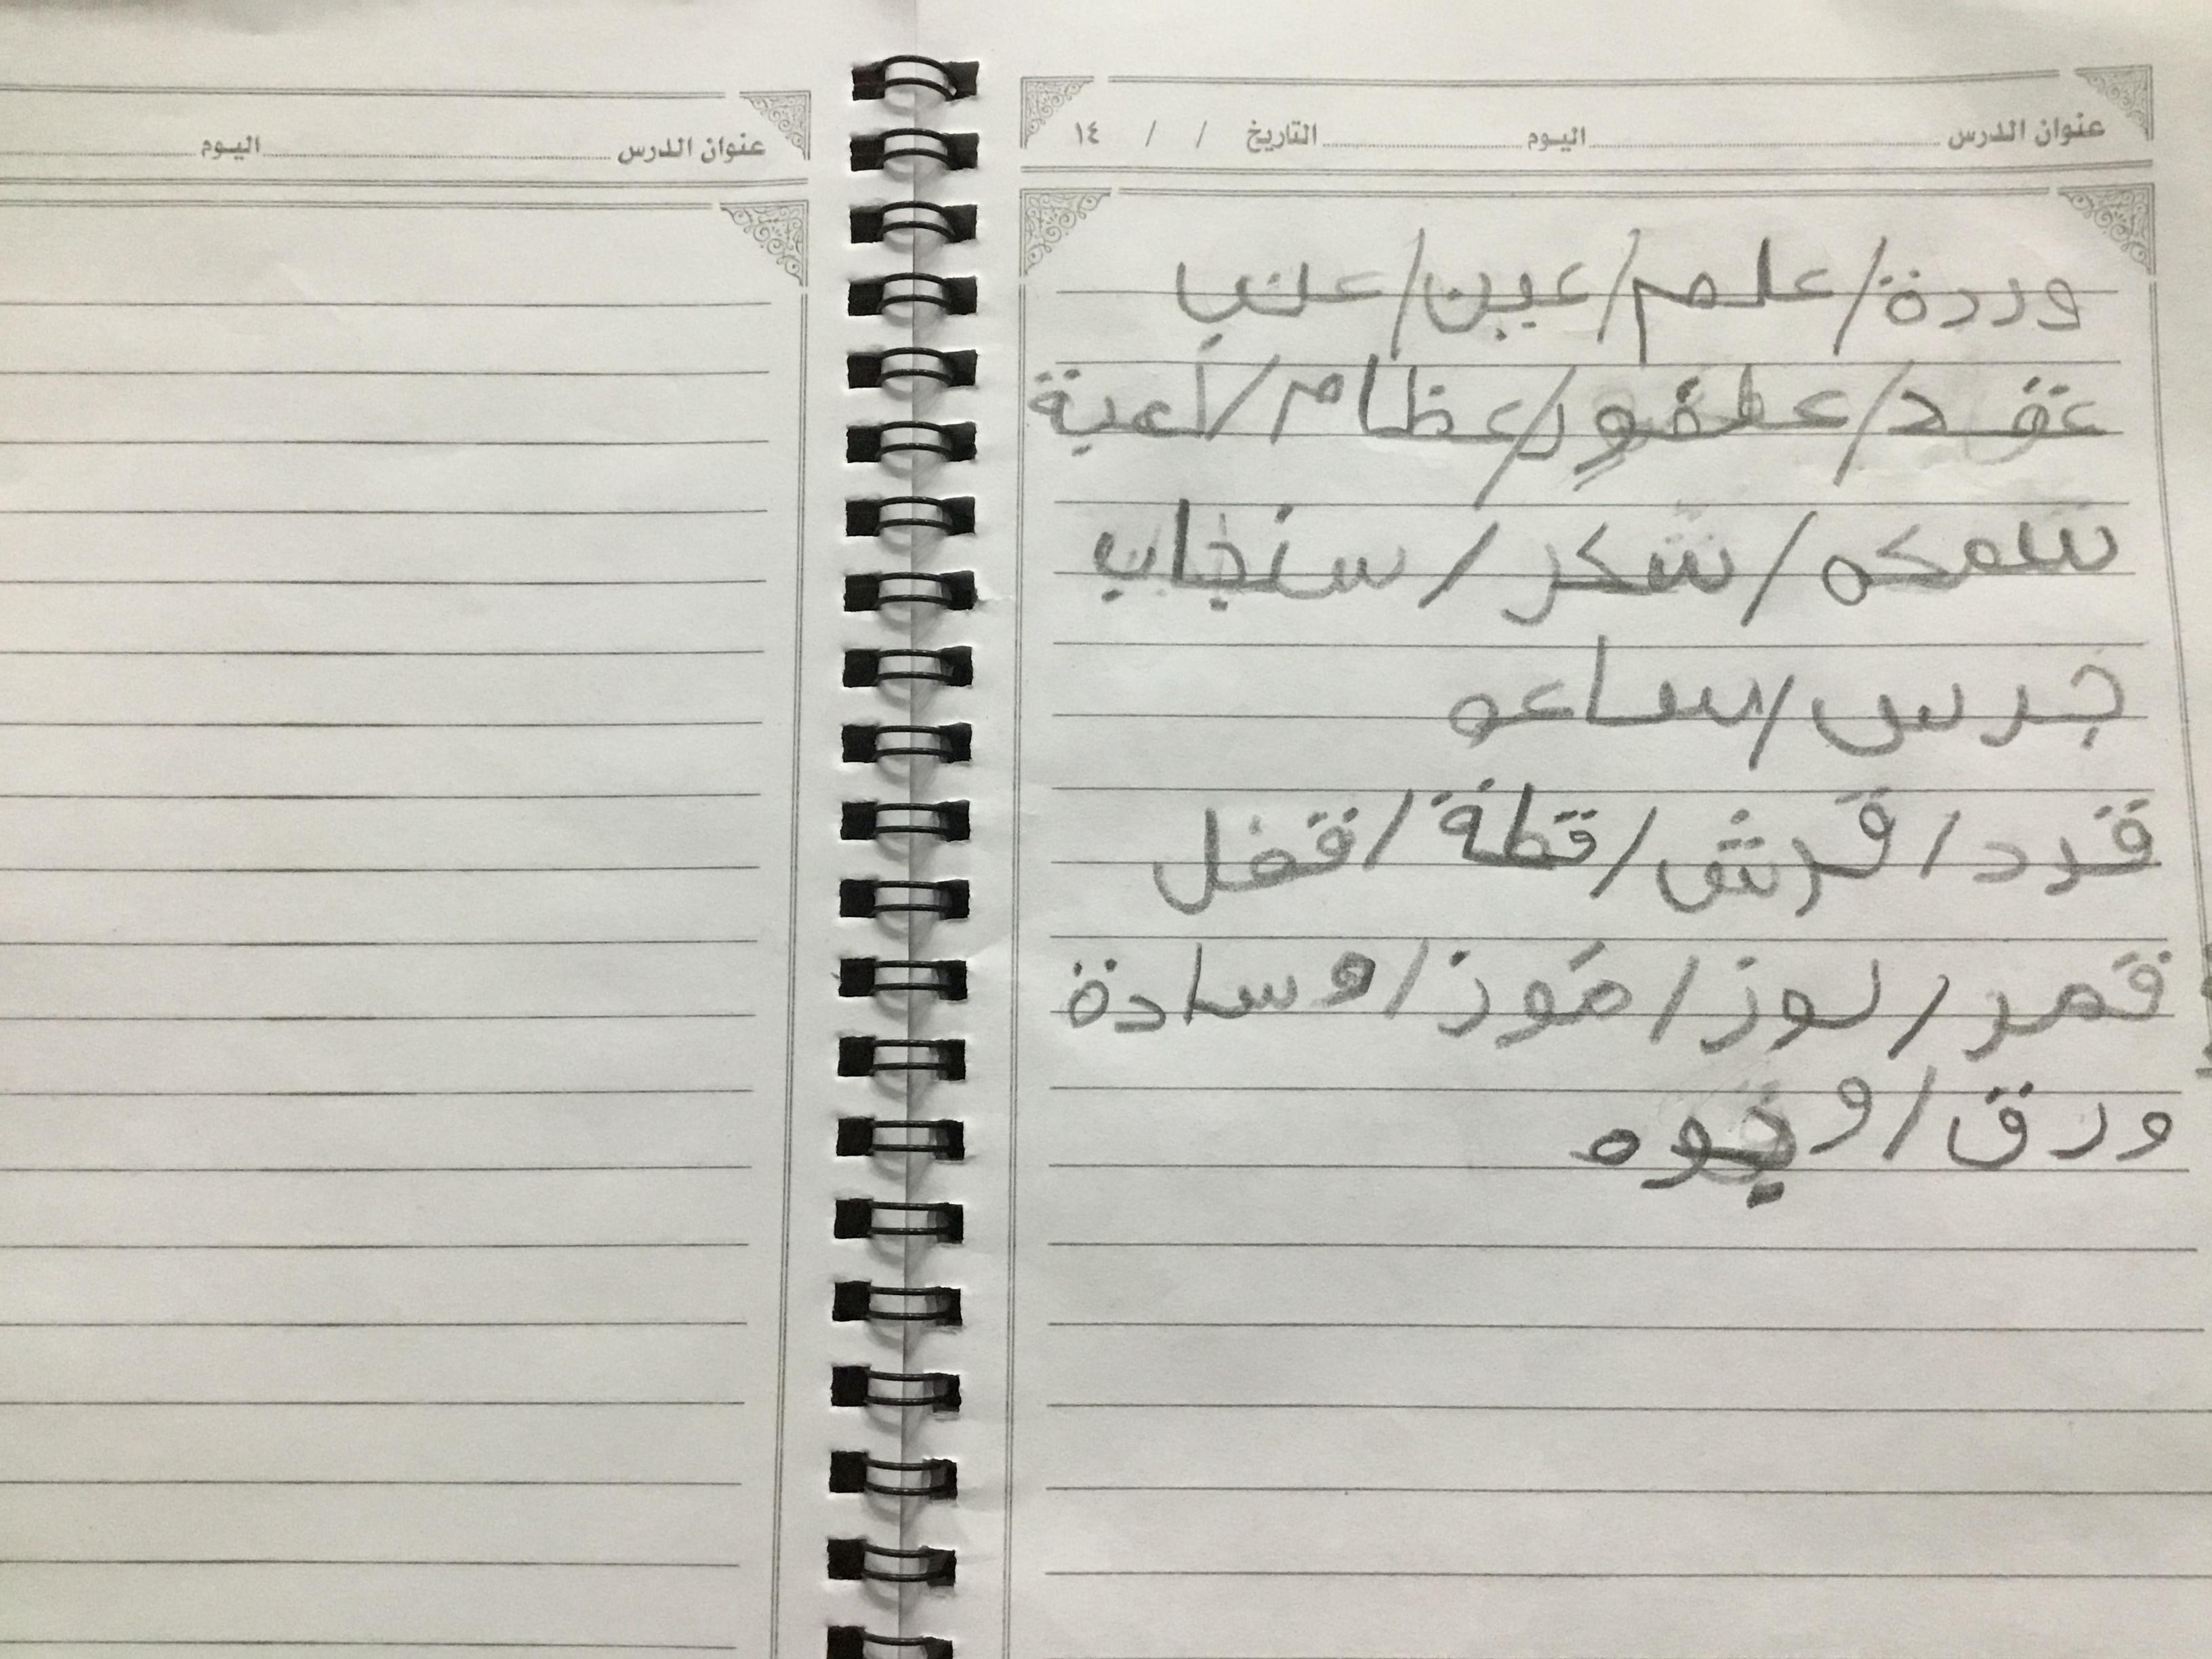 عنوان الدرس اليوم التاريخ / / ١٤
وردة/علم/عين/عنب
عقد/علفور/عظام/لعبة
سمكه/سكر/سنجاب
جرس/ساعه
قرد/قرش/قطة/قفل
قمر/لوز/موز/وسادة
ورق/وجوه
عنوان الدرس اليوم